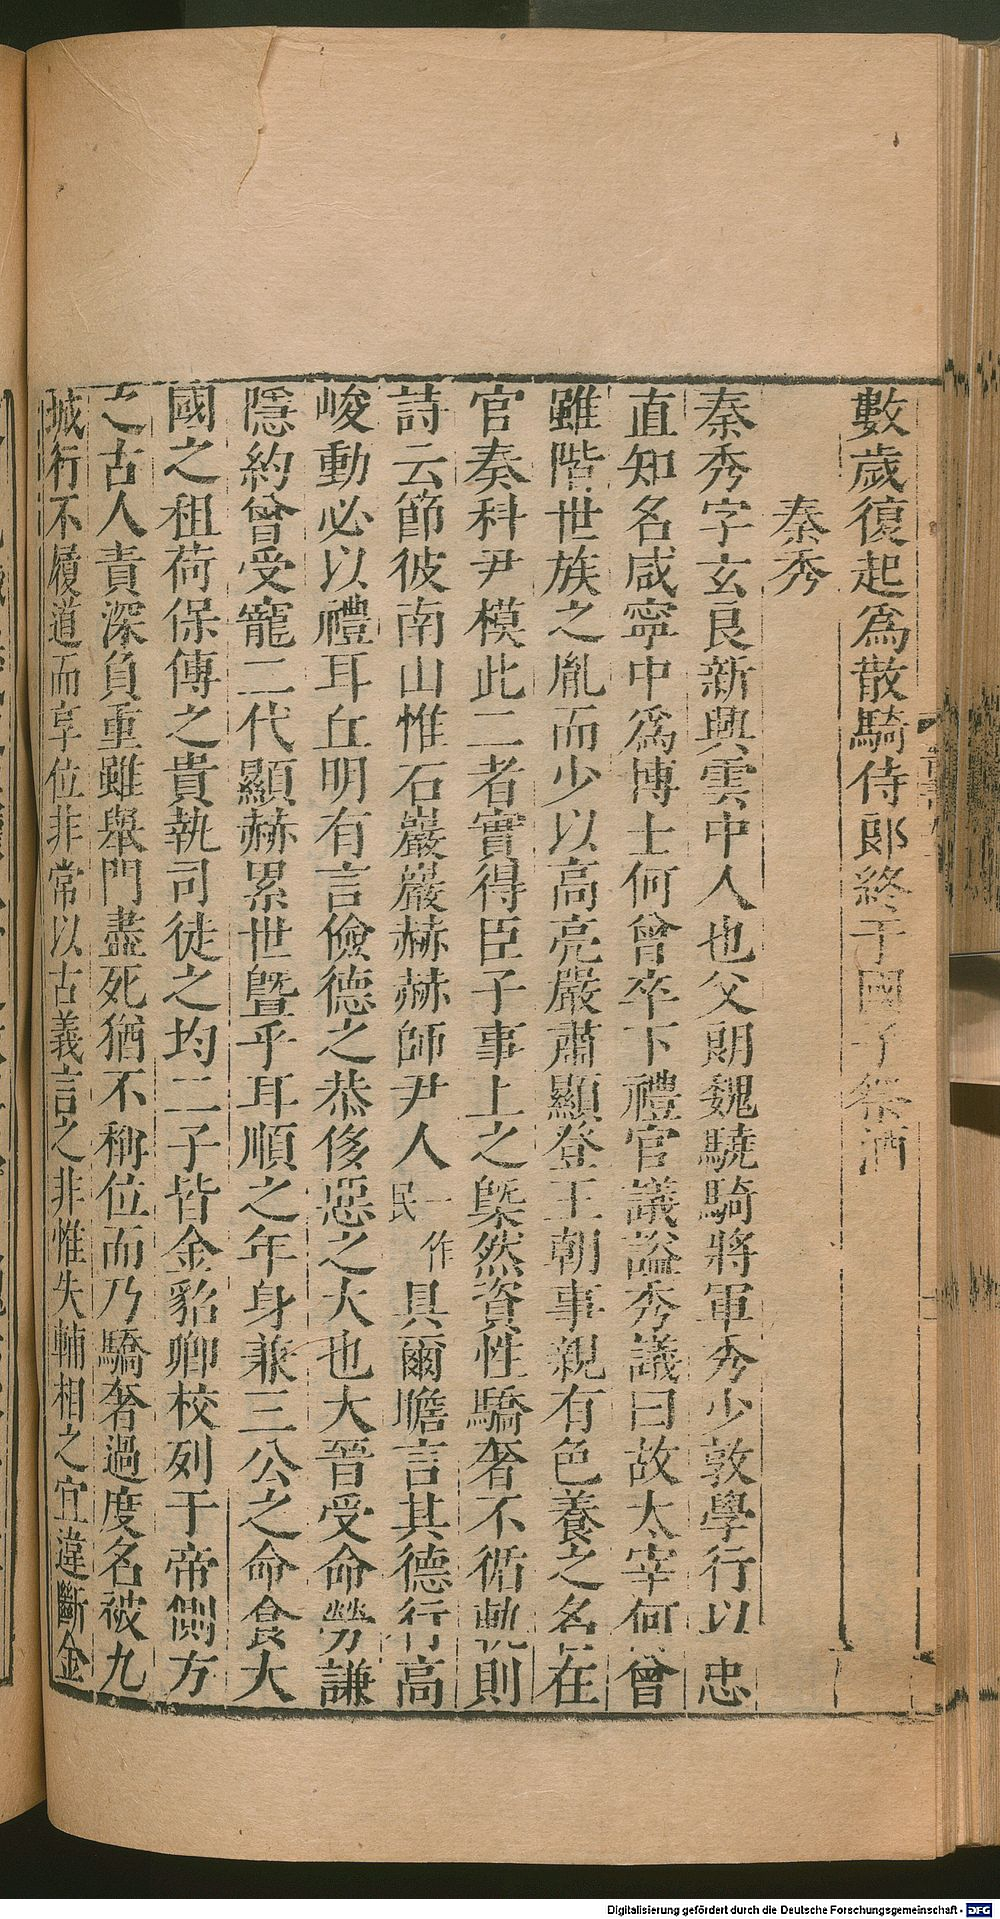 數歲復起爲散騎侍郎終于國子祭酒
秦秀
秦秀字玄良新興雲中人也父朗魏驍騎將軍秀少敦學行以忠
直知名咸寧中爲博士何曾卒下禮官議諡秀議曰故太宰何曾
雖階世族之胤而少以高亮嚴肅顯登王朝事親有色養之名在
官奏科尹模此二者實得臣子事上之槩然資性驕奢不循軌則
詩云節彼南山惟石巖巖赫赫師尹人一作民具爾瞻言其德行高
峻動必以禮耳丘明有言儉德之恭侈惡之大也大晉受命勞謙
隱約曾受寵二代顯赫累世曁乎耳順之年身兼三公之命食大
國之租荷保傅之貴執司徒之均二子皆金貂卿校列于帝側方
之古人責深負重雖舉門盡死猶不稱位而乃驕奢過度名被九
城行不履道而享位非常以古義言之非惟失輔相之宜違斷金
Digitalisierung gefördert durch die Deutsche Forschungsgemeinschaft - DFG